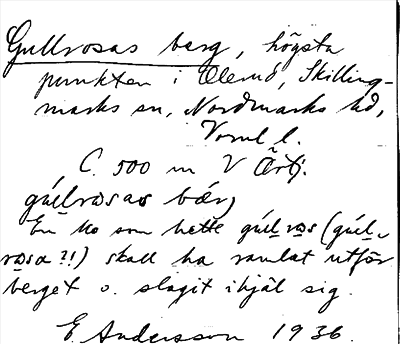 Gullrosas berg, högsta
punkten i Ölerud, Skilling-
marks sn, Nordmarks hd,
Vrml l.
C. 500 m V Ärtj.
gúl̲rɷsas bær̨
En ko som hette gúl̲rɷs (gúl̲-
rɷsa ?!) skall ha ramlat utför
berget o. slagit ihjäl sig.
E. Andersson 1936.